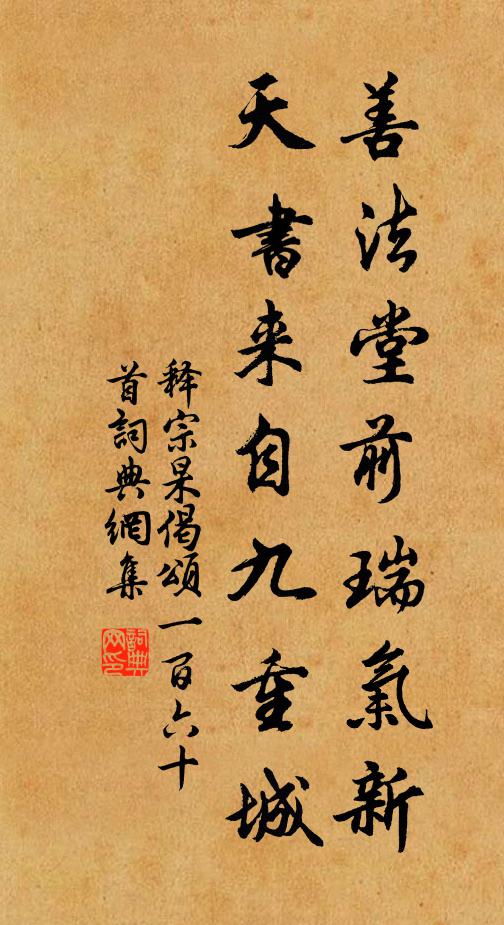 善法堂前瑞氣新
天書来自九重城
释宗杲偈頌一百六十
首詞典網集
詞典
网印